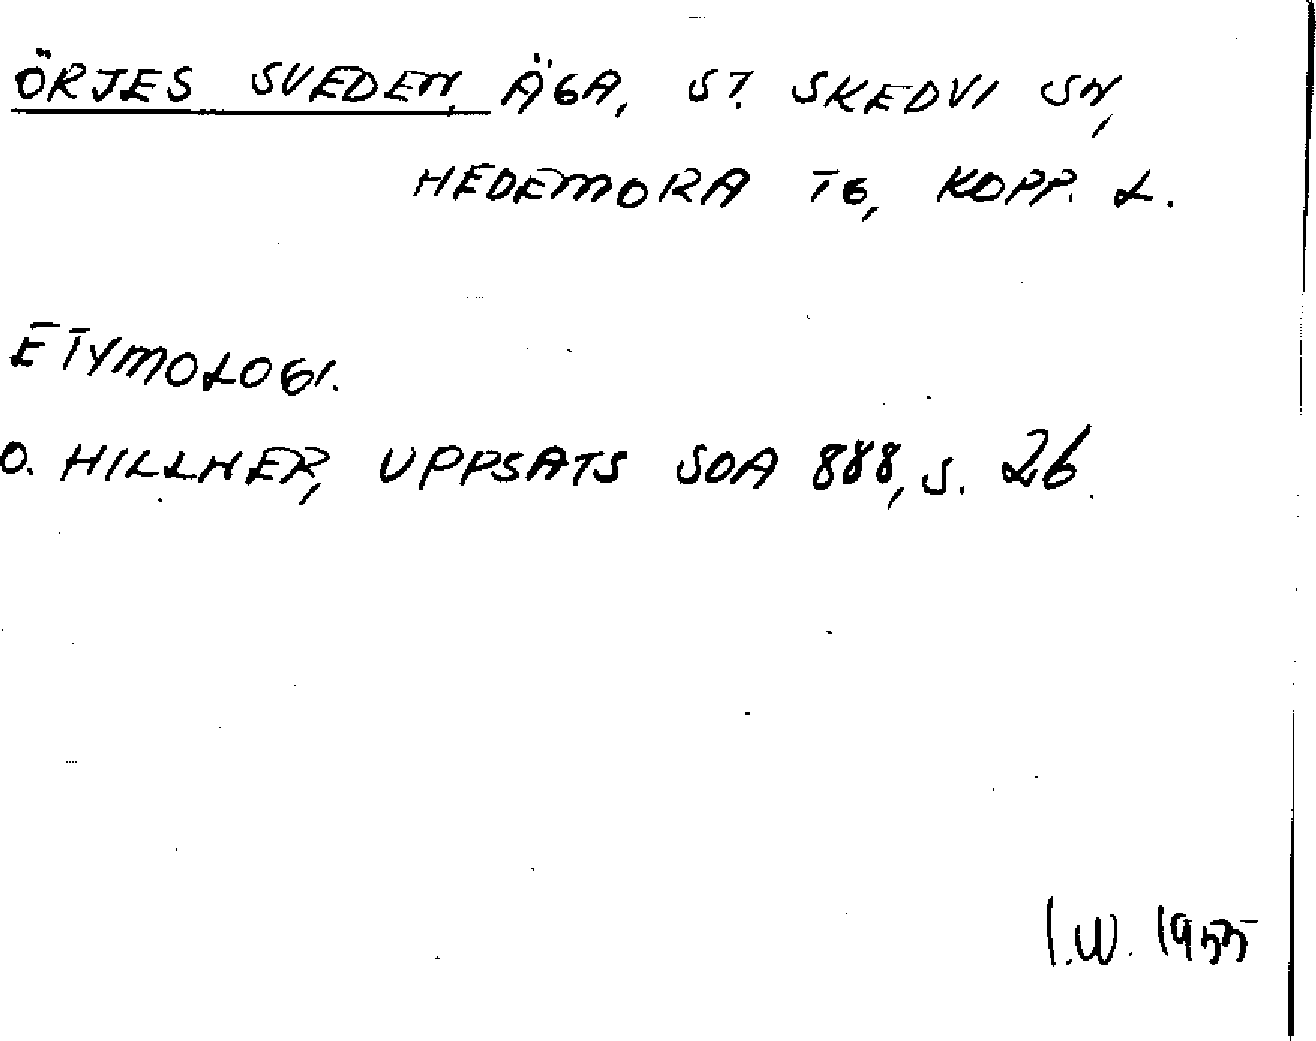 ÖRJES SVEDEN, ÄGA, ST. SKEDVI SN,
HEDEMORA TG, KOPP. L.
ETYMOLOGI.
O. HILLNER, UPPSATS SOA 888, S. 26.
I.W. 1955